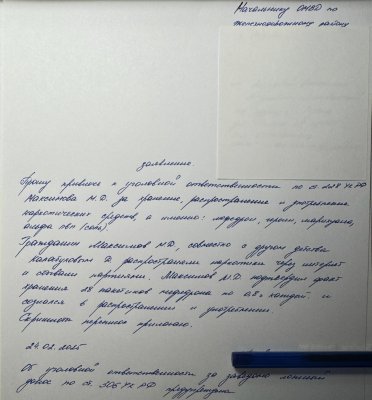 Начальнику ОМВД по
Железнодорожному району
заявление.
Прошу привлечь к уголовной ответственности по ст. 228 УК РФ
Максимова М.Д. за хранение, распространение и употребление
наркотических средств, а именно: мефедрон, героин, марихуана,
альфа пвп (соль).
Гражданин Максимов М.Д, совместно с другом детства
Д распространяли наркотики через интернет
и оптовыми партиями. Максимов М.Д подтвердил факт
хранения 28 пакетиков мефедрона по 0,5г каждый и
сознался в распространении и употреблении.
Скриншот переписки прилагаю.
24.02.2025
Об уголовной ответственности за заведомо ложный
донос по ст. 306 УК РФ предупреждена